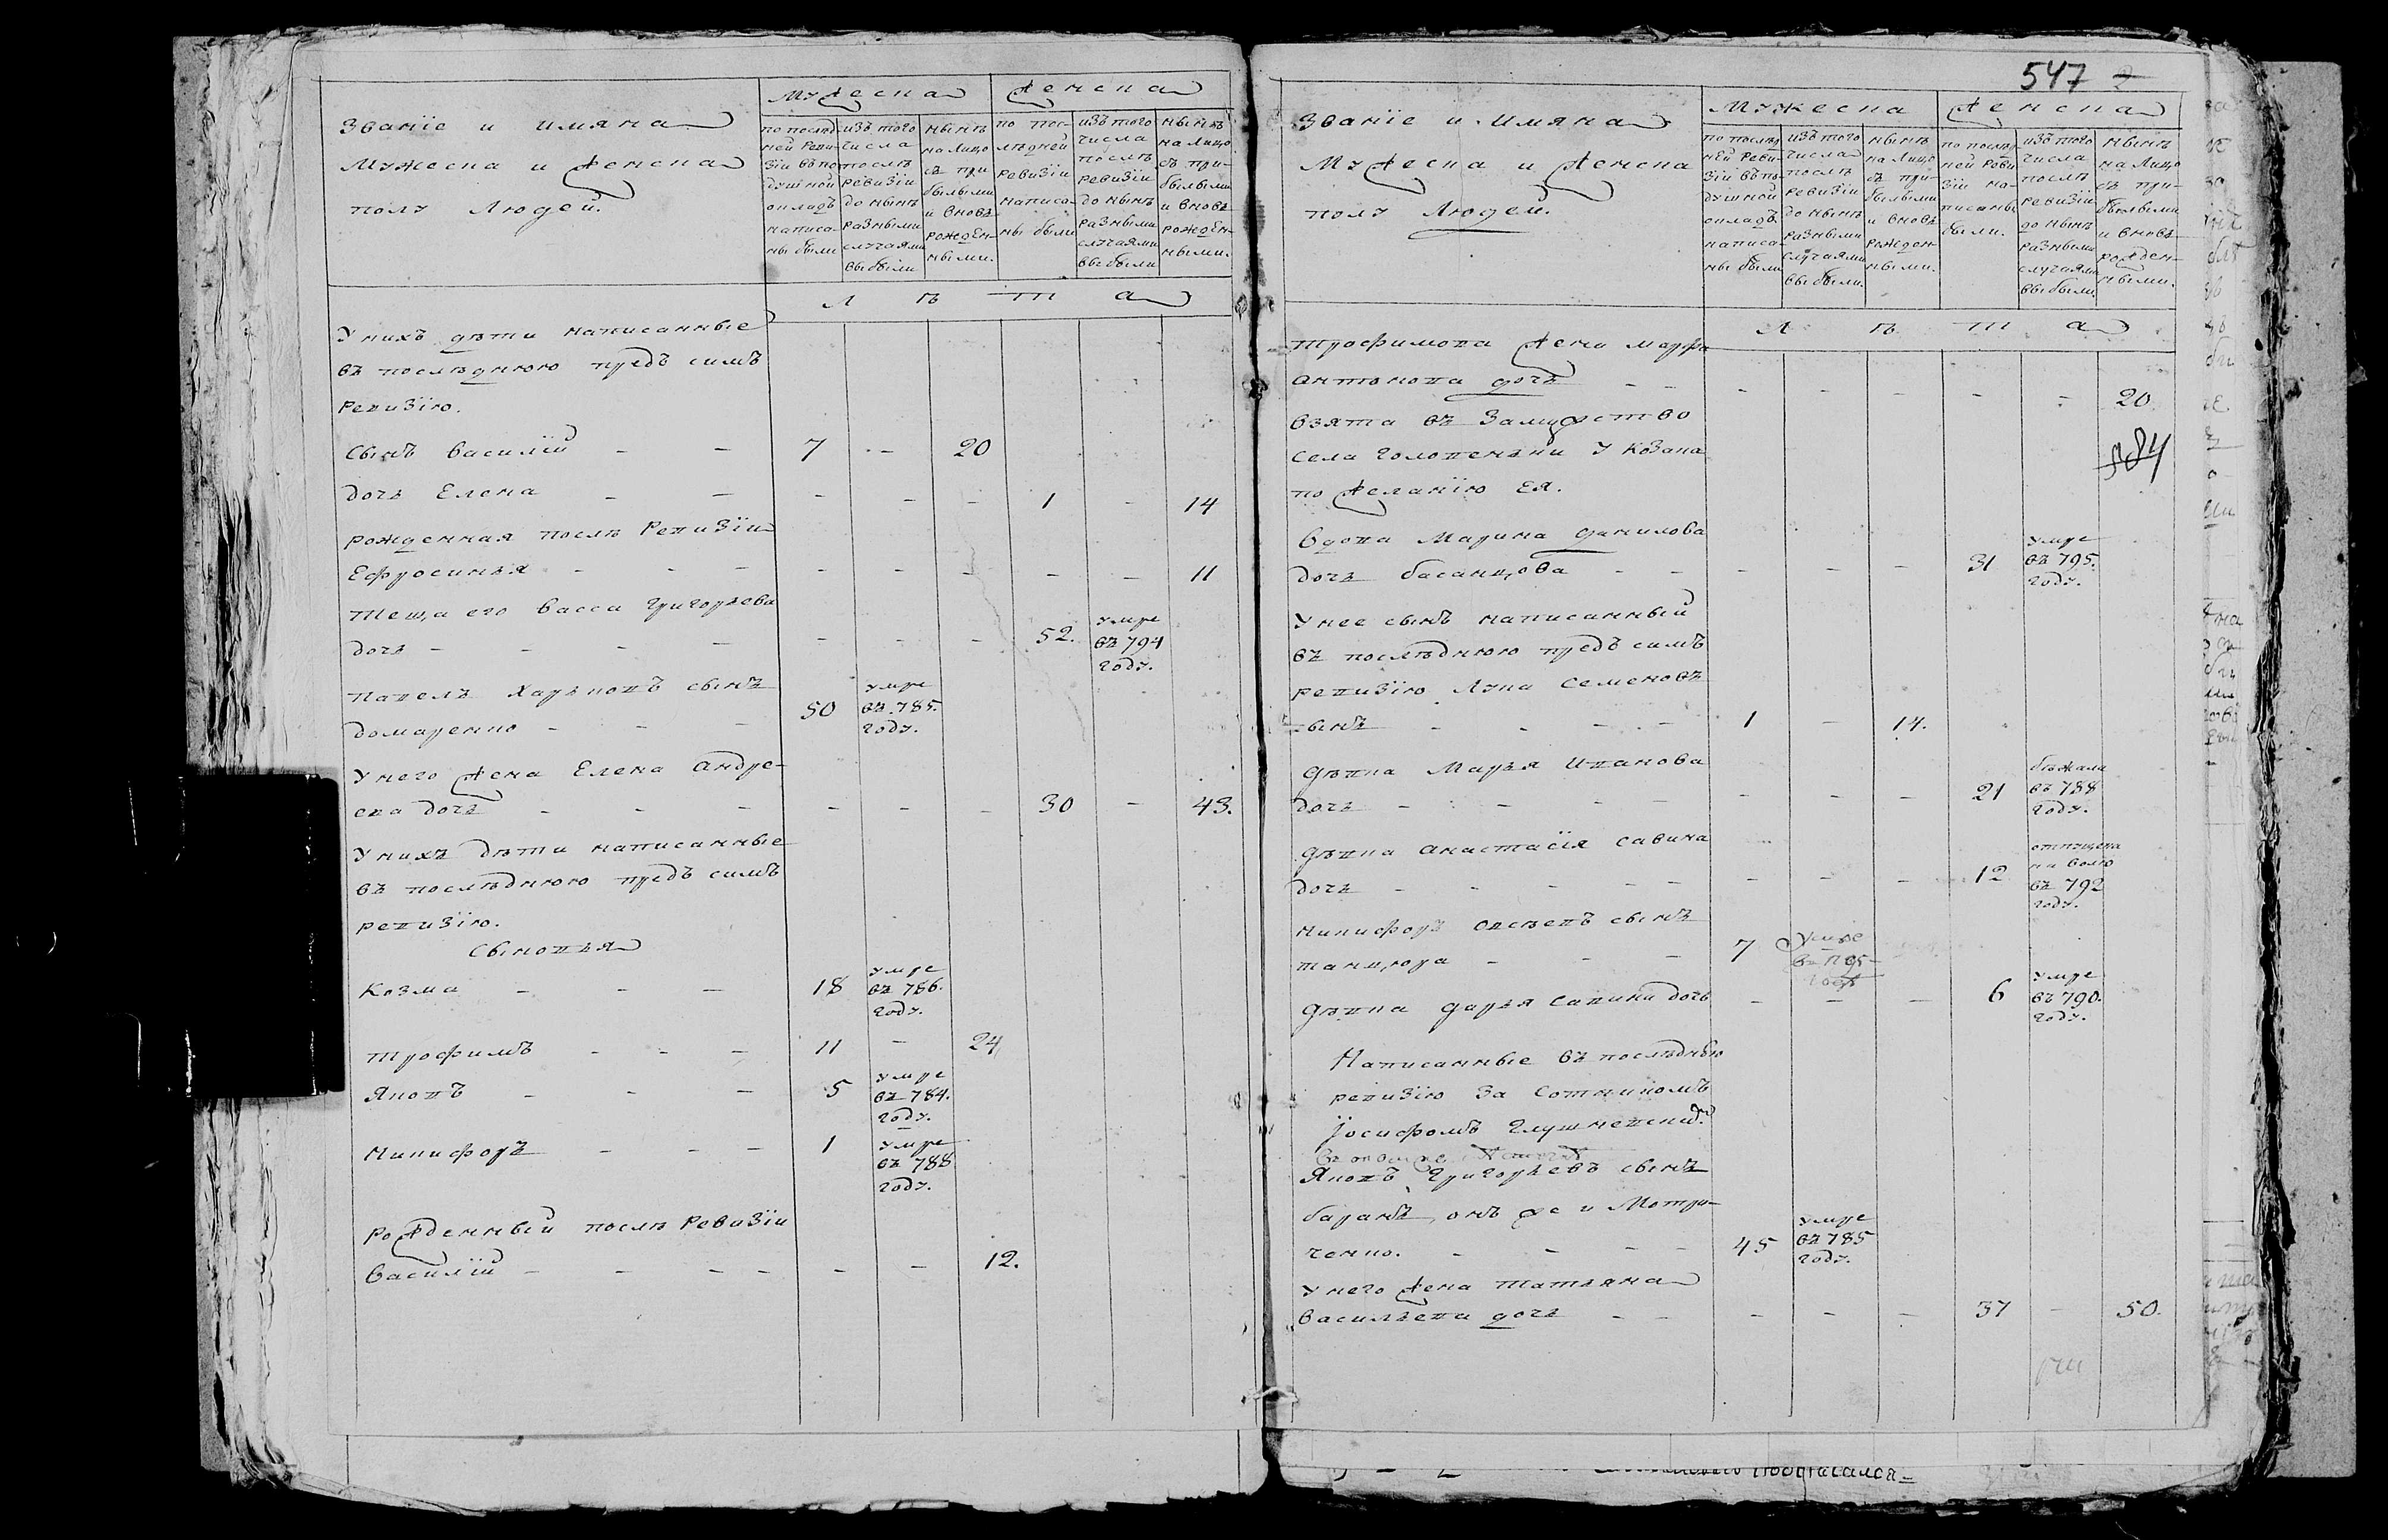 Званїе и имяна
Мужеска и женска
полу Людей.
Мужеска
женска
по послѣдней Ревизїи въ подушной окладъ написаны были
изъ того числа послѣ ревизїи до нынѣ разными случаями выбыли
нынѣ на Лицо съ прибылыми и вновь рожденными.
по послѣдней ревизїи написаны были
изъ того числа послѣ ревизїи до нынѣ разными случаями выбыли
нынѣ на Лицо съ прибылыми и вновь рожденными.
Л ѣ т а
У нихъ дѣти написанные
въ послѣднюю предъ симъ
Ревизїю.
Сынъ Василїй - - 7 - 20
дочь Елена - - - - - 1 - 14
рожденная послѣ Ревизїи
Ефросинья - - - - - - - - 11
Теща его Васса Григорьева
дочь - - - - - - - 52. умре въ 794 году.
Павелъ Карповъ сынъ
домаренко - - - 50 умре въ 785. году.
У него жена Елена Андре-
ева дочь - - - - - - 30 - 43.
У нихъ дѣти написанные
въ послѣднюю предъ симъ
ревизїю.
Сыновья
Козма - - - 18 умре въ 786. году.
Трофимъ - - - 11 - 24
Яковъ - - - 5 умре въ 784. году.
Никифоръ - - - 1 умре въ 788 году.
Рожденный послѣ Ревизїи
Василїй - - - - - - 12.
547
Званїе и Имяна
Мужеска и женска
полу Людей.
Мужеска
женска
по послѣдней Ревизїи въ подушной окладъ написаны были
изъ того числа послѣ ревизїи до нынѣ разными случаями выбыли.
нынѣ на Лицо съ прибылыми и вновь рожденными.
по послѣдней Ревизїи написаны были.
изъ того числа послѣ ревизїи до нынѣ разными случаями выбыли
нынѣ на Лицо съ прибылыми и вновь рожденными.
Л ѣ т а
Трофимова жена Марфа
Антонова дочь - - - - - - - 20.
взята въ Замужство
села Голопеньки У Козака
по желанїю ея.
Вдова Марина данилова
дочь басанцова - - - - - 31 умре въ 795. году.
У нее сынъ написанный
въ послѣднюю предъ симъ
ревизїю Лука Семеновъ
сынъ - - - - 1 - 14.
дѣвка Марья Иванова
дочь - - - - - - - 21 бѣжала въ 788 году.
дѣвка Анастасїя Савина
дочь - - - - - - - - 12 отпущена на волю въ 792 году.
Никифоръ сынъ
- - - 7 Умре
дѣвка дарья Савина дочь - - - 6 умре въ 790. году.
Написанные въ послѣднюю
ревизїю За Сотникомъ
Їосифомъ
Яковъ Григорьевъ сынъ
баранъ, онъ же и
- - - - 45 умре въ 785 году.
У него жена Татьяна
Васильева дочь - - - - - 37 - 50.